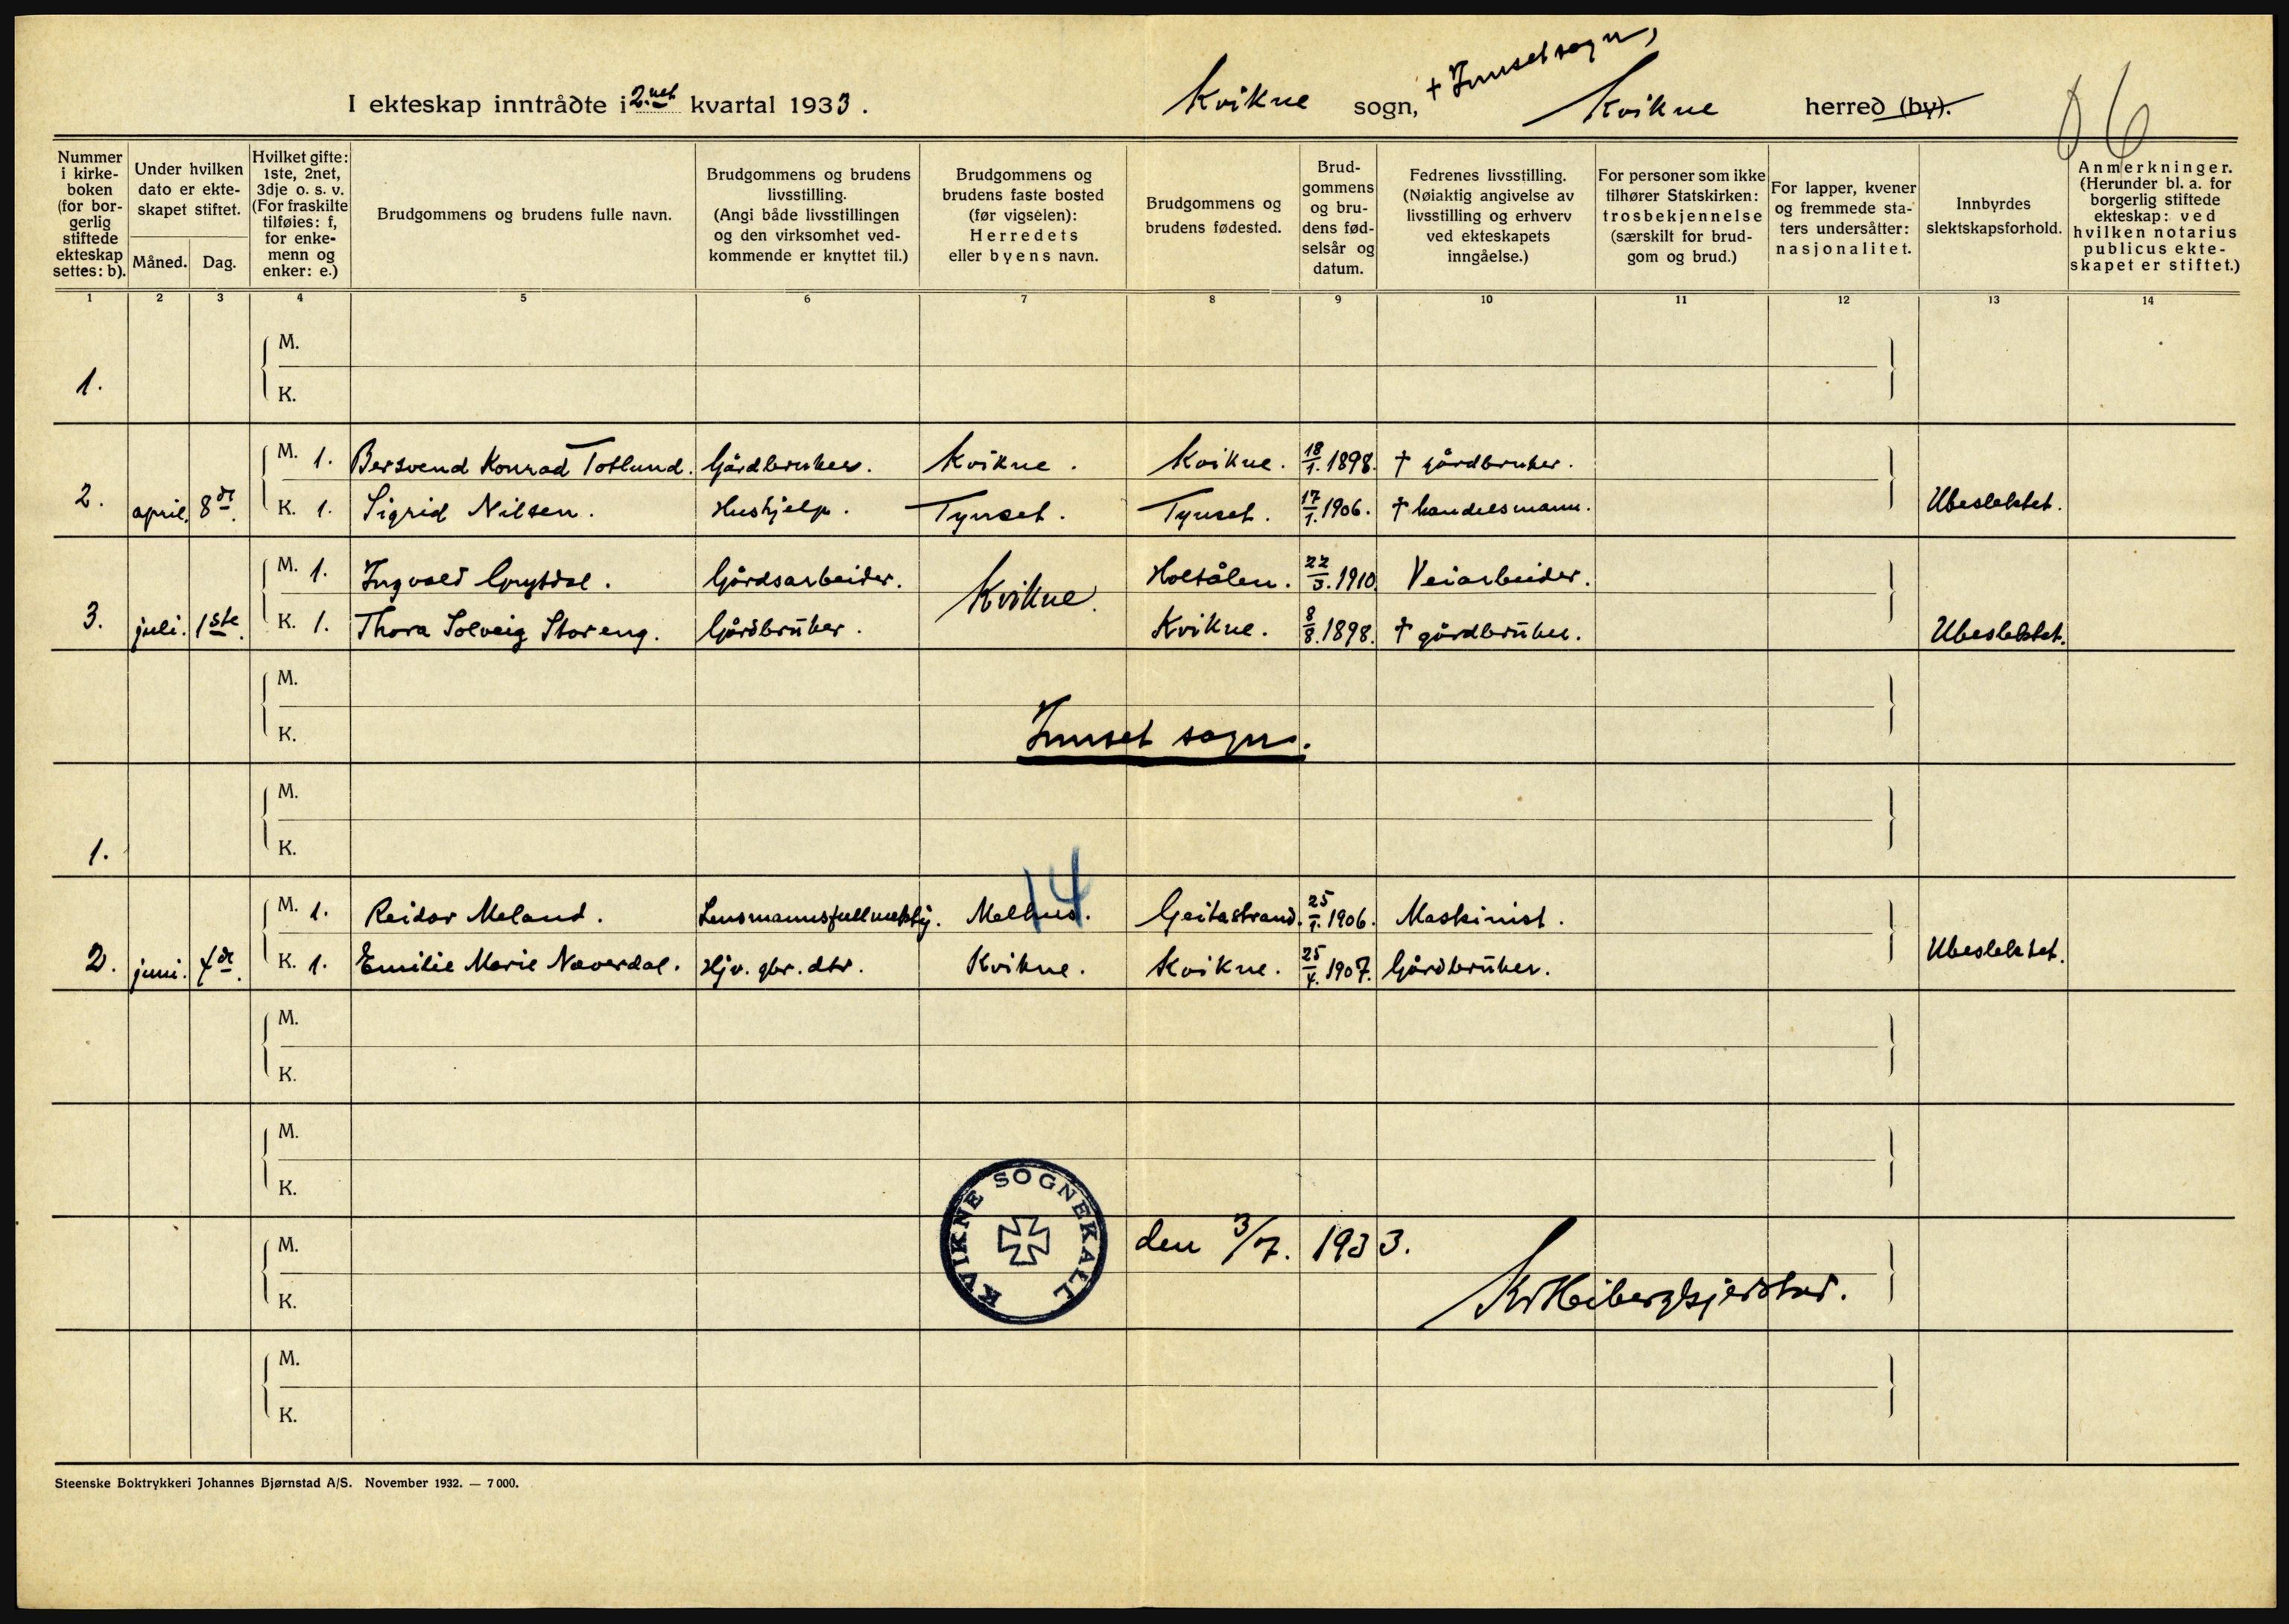 + Innset sogn,
I ekteskap inntrådte i 2.net kvartal 1933. Kvikne sogn, Kvikne herred (by).
Nummer i kirkeboken (for borgerlig stiftede ekteskap settes: b).
Under hvilken dato er ekteskapet stiftet.
Måned. Dag.
Hvilket gifte: 1ste, 2net, 3dje o. s. v. (For fraskilte tilføies: f, for enkemenn og enker: e.)
Brudgommens og brudens fulle navn.
Brudgommens og brudens livsstilling. (Angi både livsstillingen og den virksomhet vedkommende er knyttet til.)
Brudgommens og brudens faste bosted (før vigselen): Herredets eller byens navn.
Brudgommens og brudens fødested.
Brudgommens og brudens fødselsår og datum.
Fedrenes livsstilling. (Nøiaktig angivelse av livsstilling og erhverv ved ekteskapets inngåelse.)
For personer som ikke tilhører Statskirken: trosbekjennelse (særskilt for brudgom og brud.)
For lapper, kvener og fremmede staters undersåtter: nasjonalitet.
Innbyrdes slektskapsforhold.
Anmerkninger. (Herunder bl. a. for borgerlig stiftede ekteskap: ved hvilken notarius publicus ekteskapet er stiftet.)
1 2 3 4 5 6 7 8 9 10 11 12 13 14
M.
1.
K.
M. 1. Bersvend Konrad Totlund. Gårdbruker. Kvikne. Kvikne. 18/1. 1898. † gårdbruker.
2. april. 8de. K. 1. Sigrid Nilsen. Hushjelp. Tynset. Tynset. 17/1. 1906. † handelsmann. Ubeslektet.
M. 1. Ingvald Grytdal. Gårdsarbeider. Kvikne. Holtålen. 22/3. 1910. Veiarbeider.
3. juli. 1ste. K. 1. Thora Solveig Storeng. Gårdbruker. Kvikne. 8/8. 1898. † gårdbruker. Ubeslektet.
M.
K.
Innset sogn.
M.
1. K.
14
M. 1. Reidar Meland. Lensmannsfullmektig. Melhus. Geitastrand. 25/1. 1906. Maskinist.
2. juni. 4de. K. 1. Emilie Marie Næverdal. Hjv. gbr. dtr. Kvikne. Kvikne. 25/4. 1907. Gårdbruker. Ubeslektet.
M.
K.
M.
K.
KVIKNE SOGNEKALL
M. den 3/7. 1933.
K.
M.
K.
Steenske Boktrykkeri Johannes Bjørnstad A/S. November 1932. — 7 000.